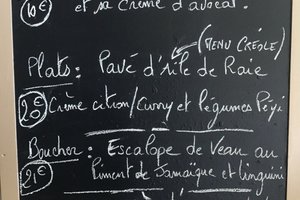 10€ et sa crème d'avocat.
(MENU CRÉOLE)
Plats : Pavé d'aile de Raie
20€ Crème citron/Curry et légumes Péyi
Boucher : Escalope de Veau au
21€ Piment de Jamaïque et linguini